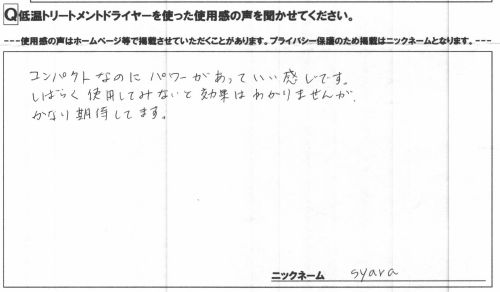 Q低温トリートメントドライヤーを使った使用感の声を聞かせてください。
---使用感の声はホームページ等で掲載させていただくことがあります。プライバシー保護のため掲載はニックネームとなります。---
コンパクトなのにパワーがあっていい感じです。
しばらく使用してみないと効果はわかりませんが、
かなり期待してます。
ニックネーム syara